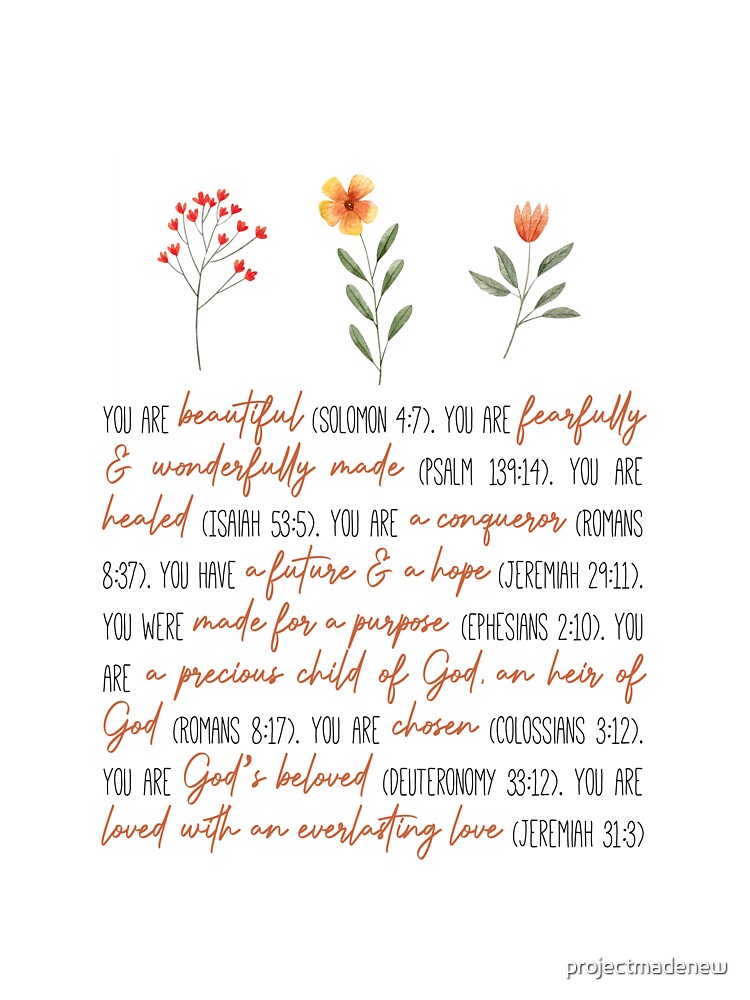 YOU ARE beautiful (SOLOMON 4:7). YOU ARE fearfully
& wonderfully made (PSALM 139:14). YOU ARE
healed (ISAIAH 53:5). YOU ARE a conqueror (ROMANS
8:37). YOU HAVE a future & a hope (JEREMIAH 29:11).
YOU WERE made for a purpose (EPHESIANS 2:10). YOU
ARE a precious child of God, an heir of
God (ROMANS 8:17). YOU ARE chosen (COLOSSIANS 3:12).
YOU ARE God's beloved (DEUTERONOMY 33:12). YOU ARE
loved with an everlasting love (JEREMIAH 31:3)
projectmadenew